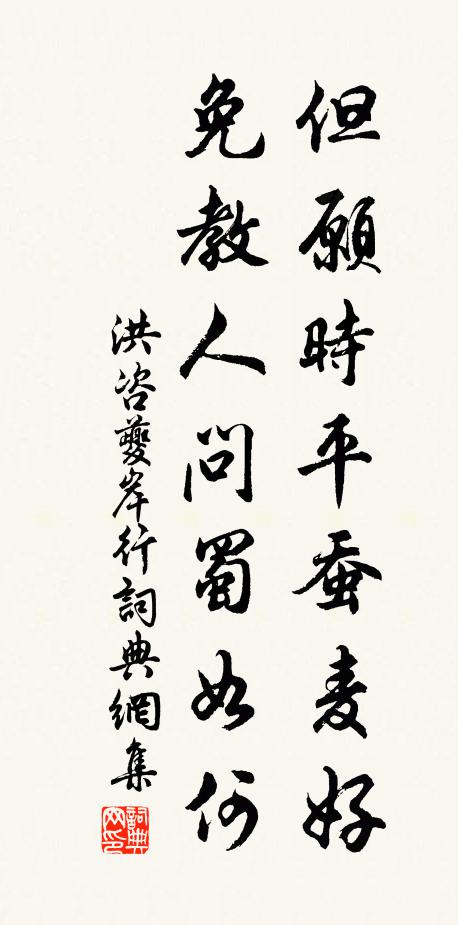 但願時平蚕麦好
免教人問蜀如何
洪咨夔岸行詞典網集
詞典网印